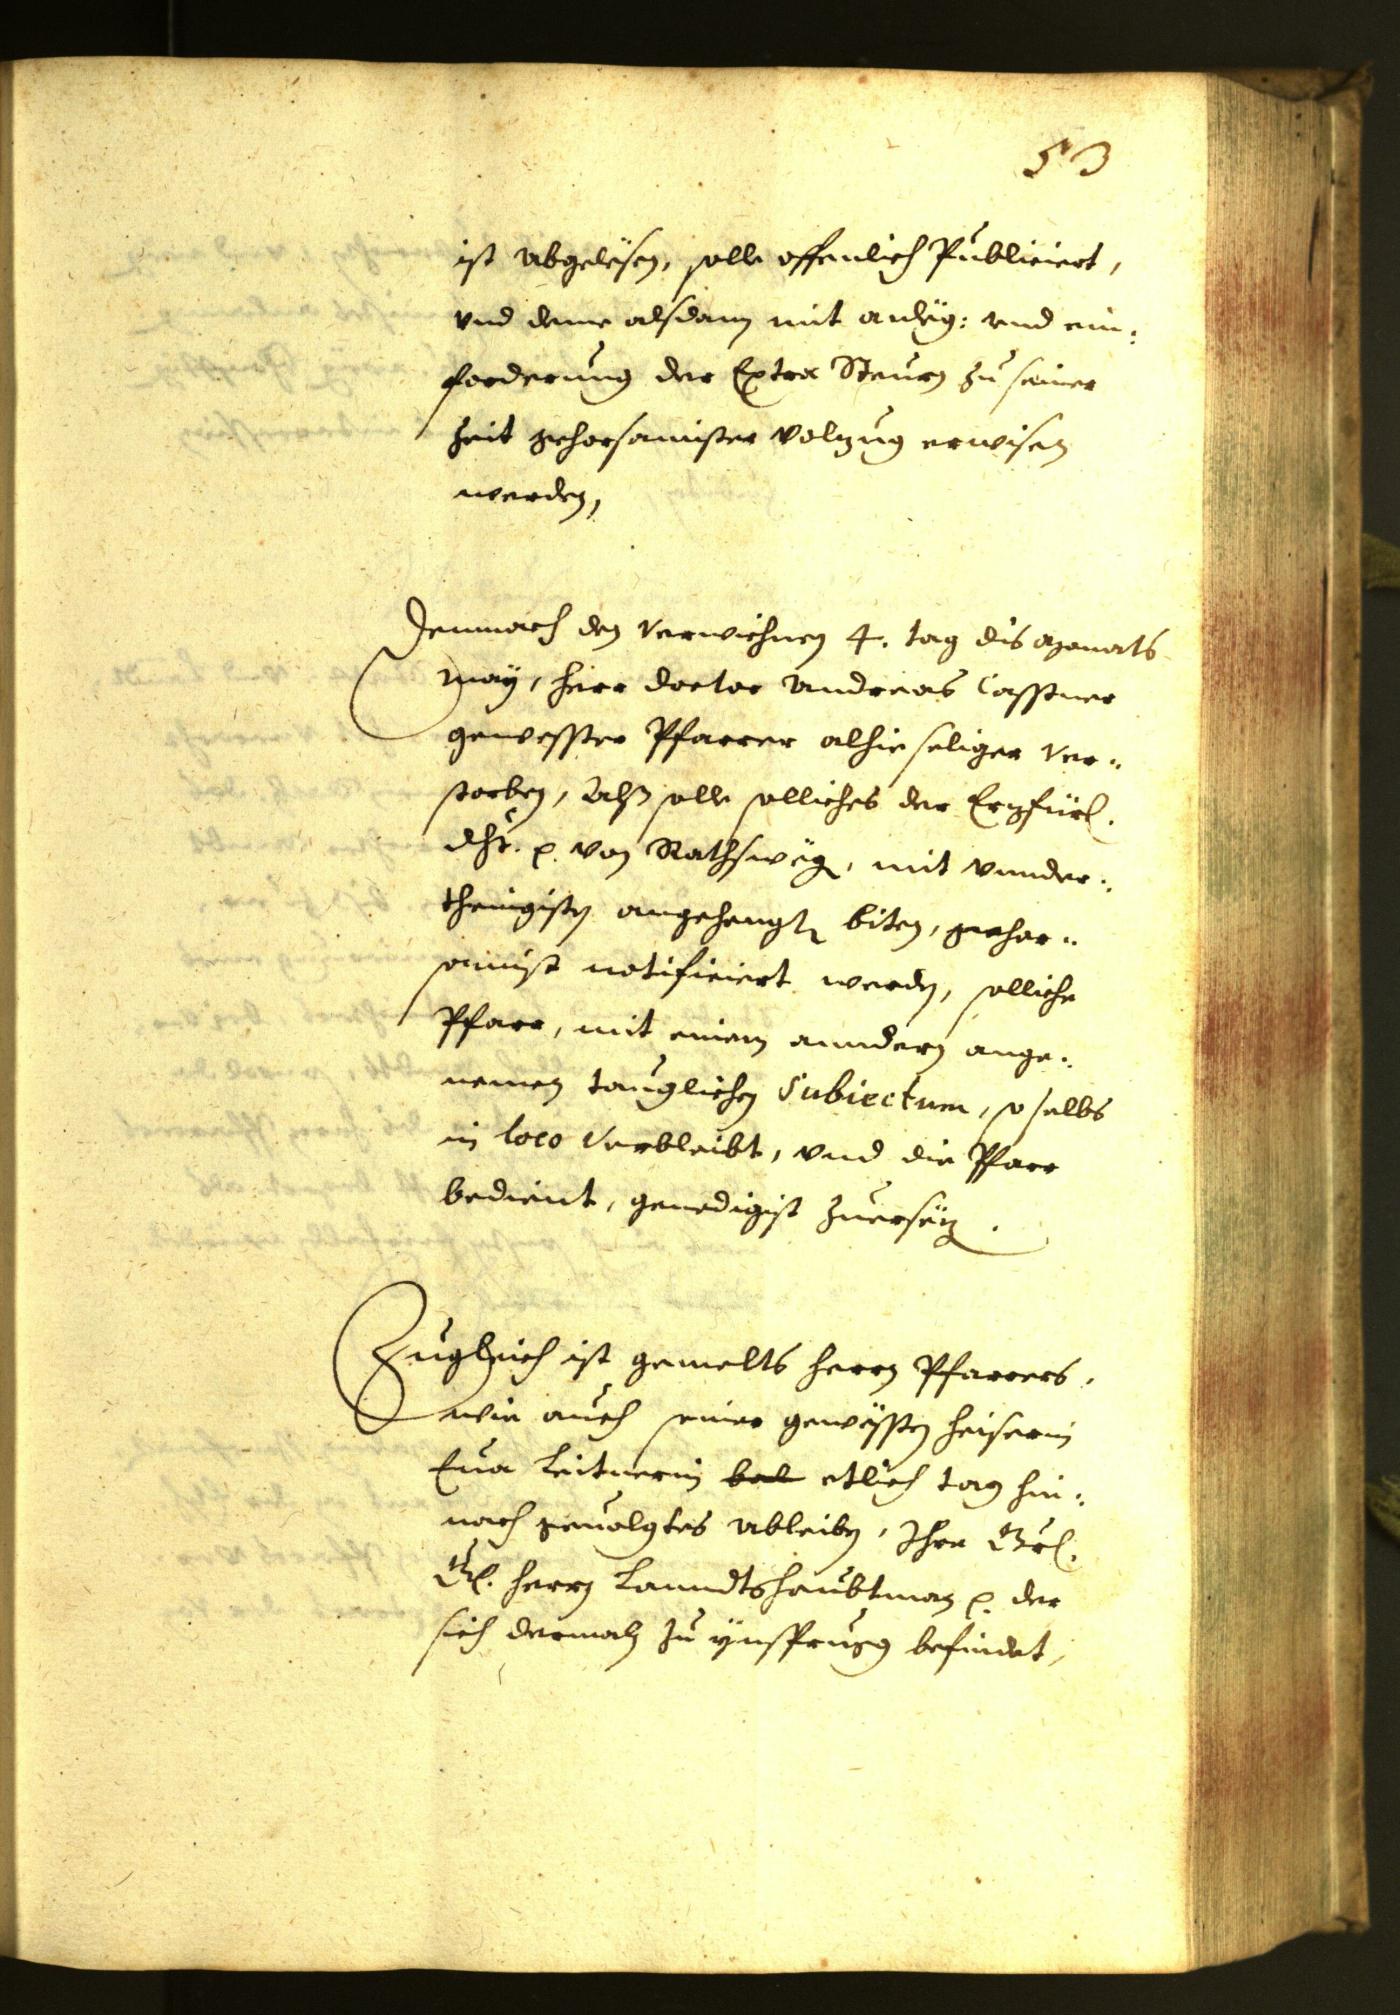 53
ist abgelesen, solle offenlich Publiciert,
vnd deme alsdann mit anleg: vnd ein:
forderung der Extra Steurn zu seiner
Zeit gehorsamister volzug erwisen
werden,
Demnach den verwichnen 4. tag dis Monats
May, herr doctor Andreas Casstner
gewesster Pfarrer alhie seliger ver:
storben, Alß solle solliches der Erzfürl.
dht. p. von Rathsweg, mit vnnder:
thenigisten angehengten biten, gehor:
samist notificiert werden, solliche
Pfarr, mit einem anndern ange:
nemen tauglichen Subiectum, so selbs
in loco verbleibt, vnd die Pfarr
bedient, genedigist zuersezen.
Zugleich ist gemelts herrn Pfarrers,
wie auch seiner gewessten heiserin
Eua Leitnerin bal etlich tag hin:
nach geuolgtes ableiben, Ihre Gräfl.
Gl. herrn Lanndtshaubtman p. der
sich dermaln zu Ynsprugg befindet,